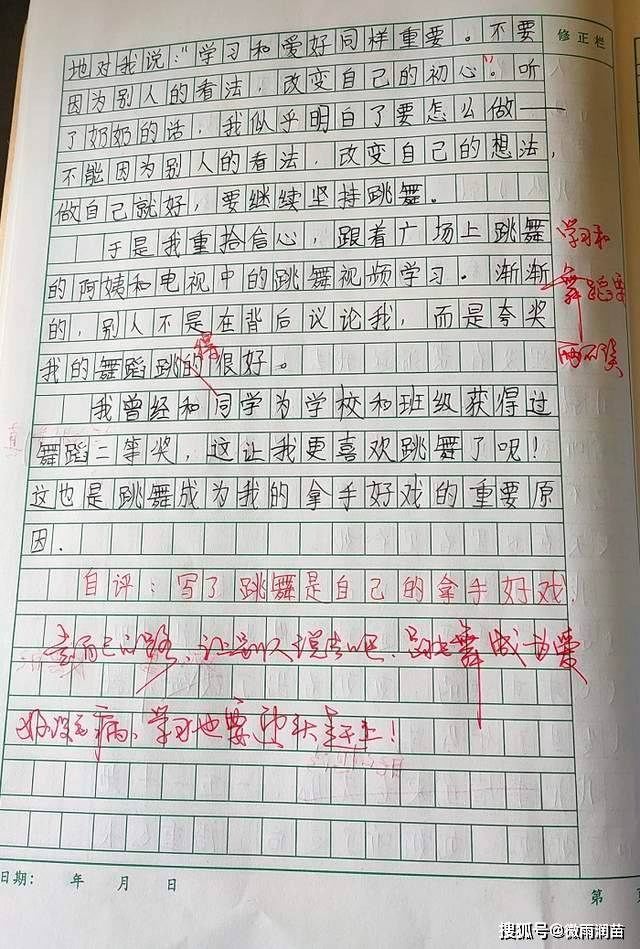 地对我说:“学习和爱好同样重要。不要
修正栏
因为别人的看法,改变自己的初心”。听
了奶奶的话,我似乎明白了要怎么做——
不能因为别人的看法,改变自己的想法,
做自己就好,要继续坚持跳舞。
于是我重拾信心,跟着广场上跳舞
的阿姨和电视中的跳舞视频学习。渐渐
的,别人不是在背后议论我,而是夸奖
我的舞蹈跳的很好。
得
学习和
舞蹈要
两不误
我曾经和同学为学校和班级获得过
舞蹈二等奖,这让我更喜欢跳舞了呢!
这也是跳舞成为我的拿手好戏的重要原
因.
自评:写了跳舞是自己的拿手好戏.
走自己的路、让别人说去吧、跳舞成为爱
好没毛病、学习也要迎头赶上!
日期: 年 月 日
第 页
搜狐号@微雨润苗